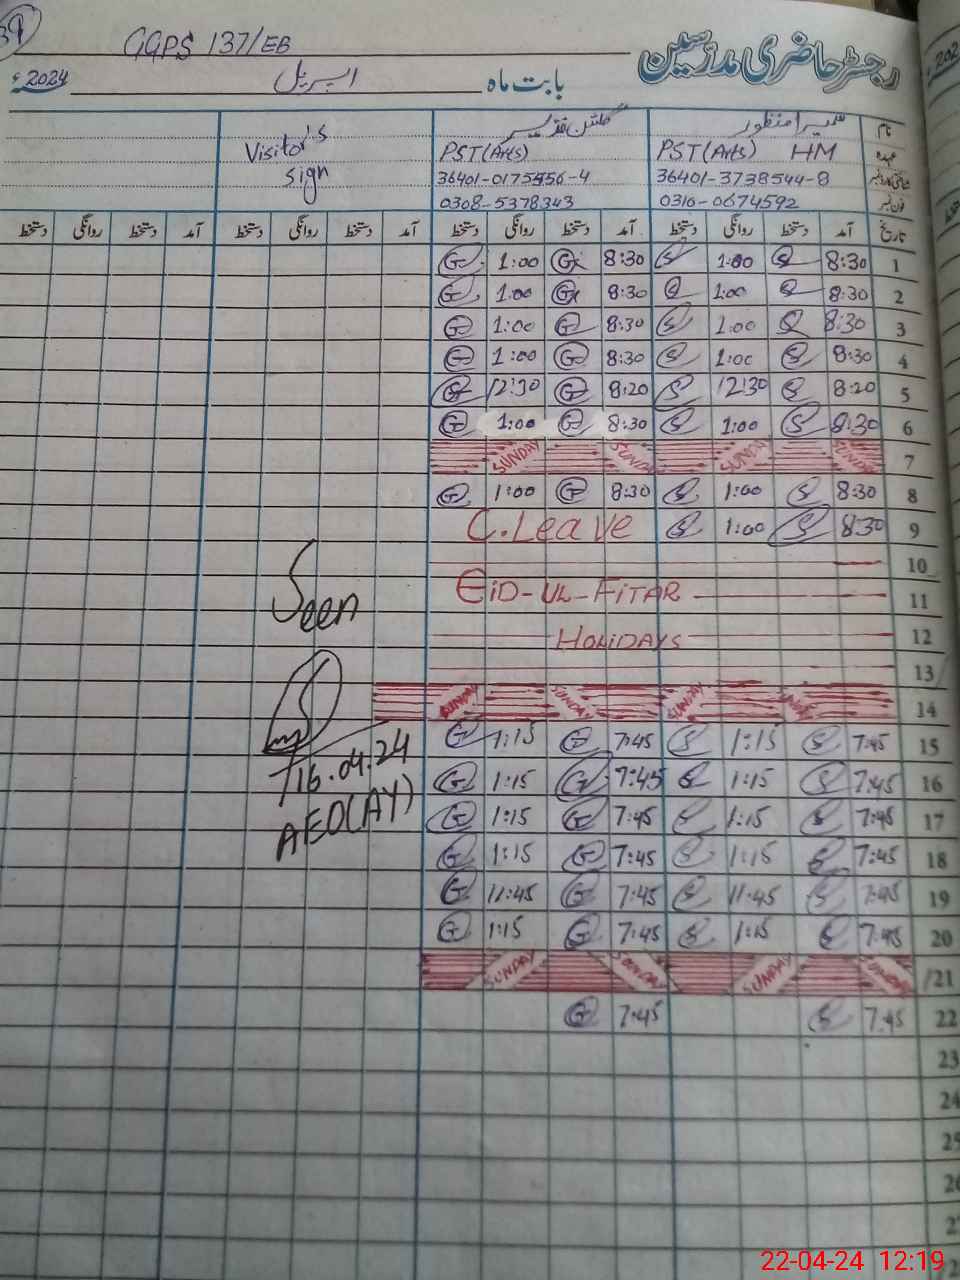 39
GGPS 137/EB
رجسٹر حاضری مدرسین
بابت ماہ اپریل 2024ء
نام سمیرا منظور گلشن Visitor's
عہدہ PST(Arts) HM PST(Arts) sign
شناختی کارڈ نمبر 36401-3738544-8 36401-0175556-4
فون نمبر 0310-0674592 0308-5378343
تاریخ آمد دستخط روانگی دستخط آمد دستخط روانگی دستخط آمد دستخط روانگی دستخط آمد دستخط روانگی دستخط
1 8:30 S 1:00 S 8:30 G 1:00 G
2 8:30 S 1:00 S 8:30 G 1:00 G
3 8:30 S 1:00 S 8:30 G 1:00 G
4 8:30 S 1:00 S 8:30 G 1:00 G
5 8:20 S 12:30 S 8:20 G 12:30 G
6 8:30 S 1:00 S 8:30 G 1:00 G
7 SUNDAY SUNDAY SUNDAY SUNDAY
8 8:30 S 1:00 S 8:30 G 1:00 G
9 8:30 S 1:00 S C.Leave
10
11 EID-UL-FITAR
12 HOLIDAYS
13
14 SUNDAY SUNDAY SUNDAY SUNDAY
15 7:45 S 1:15 S 7:45 G 1:15 G
16 7:45 S 1:15 S 7:45 G 1:15 G
17 7:45 S 1:15 S 7:45 G 1:15 G
18 7:45 S 1:15 S 7:45 G 1:15 G
19 7:45 S 11:45 S 7:45 G 11:45 G
20 7:45 S 1:15 S 7:45 G 1:15 G
21 SUNDAY SUNDAY SUNDAY SUNDAY
22 7:45 S 7:45 G
23
24
25
26
Seen
16.04.24
AEO(AY)
22-04-24 12:19